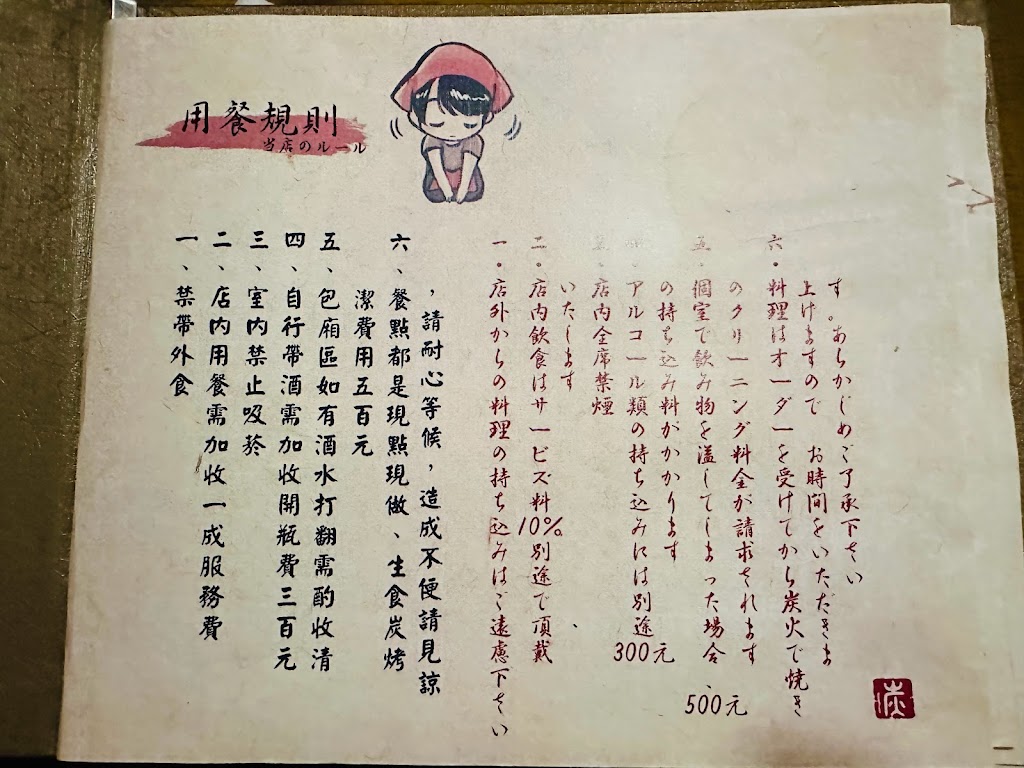 用餐規則
当店のルール
一、禁帶外食
二、店内用餐需加收一成服務費
三、室内禁止吸菸
四、自行帶酒需加收開瓶費三百元
五、包廂區如有酒水打翻需酌收清
潔費用五百元
六、餐點都是現點現做、生食炭烤
，請耐心等候，造成不便請見諒
一。店外からの料理の持ち込みはご遠慮下さい
二。店内飲食はサービズ料10%別途で頂戴
いたします、
三。店内全席禁煙
四。アルコール類の持ち込みには別途300元
の持ち込み料がかかります
五。個室で飲み物を溢してしまった場合、500元
のクリーニング料金が請求されます
六。料理はオーダーを受けてから炭火で焼き
上げますので お時間をいただきま
す。あらかじめご了承下さい
炭